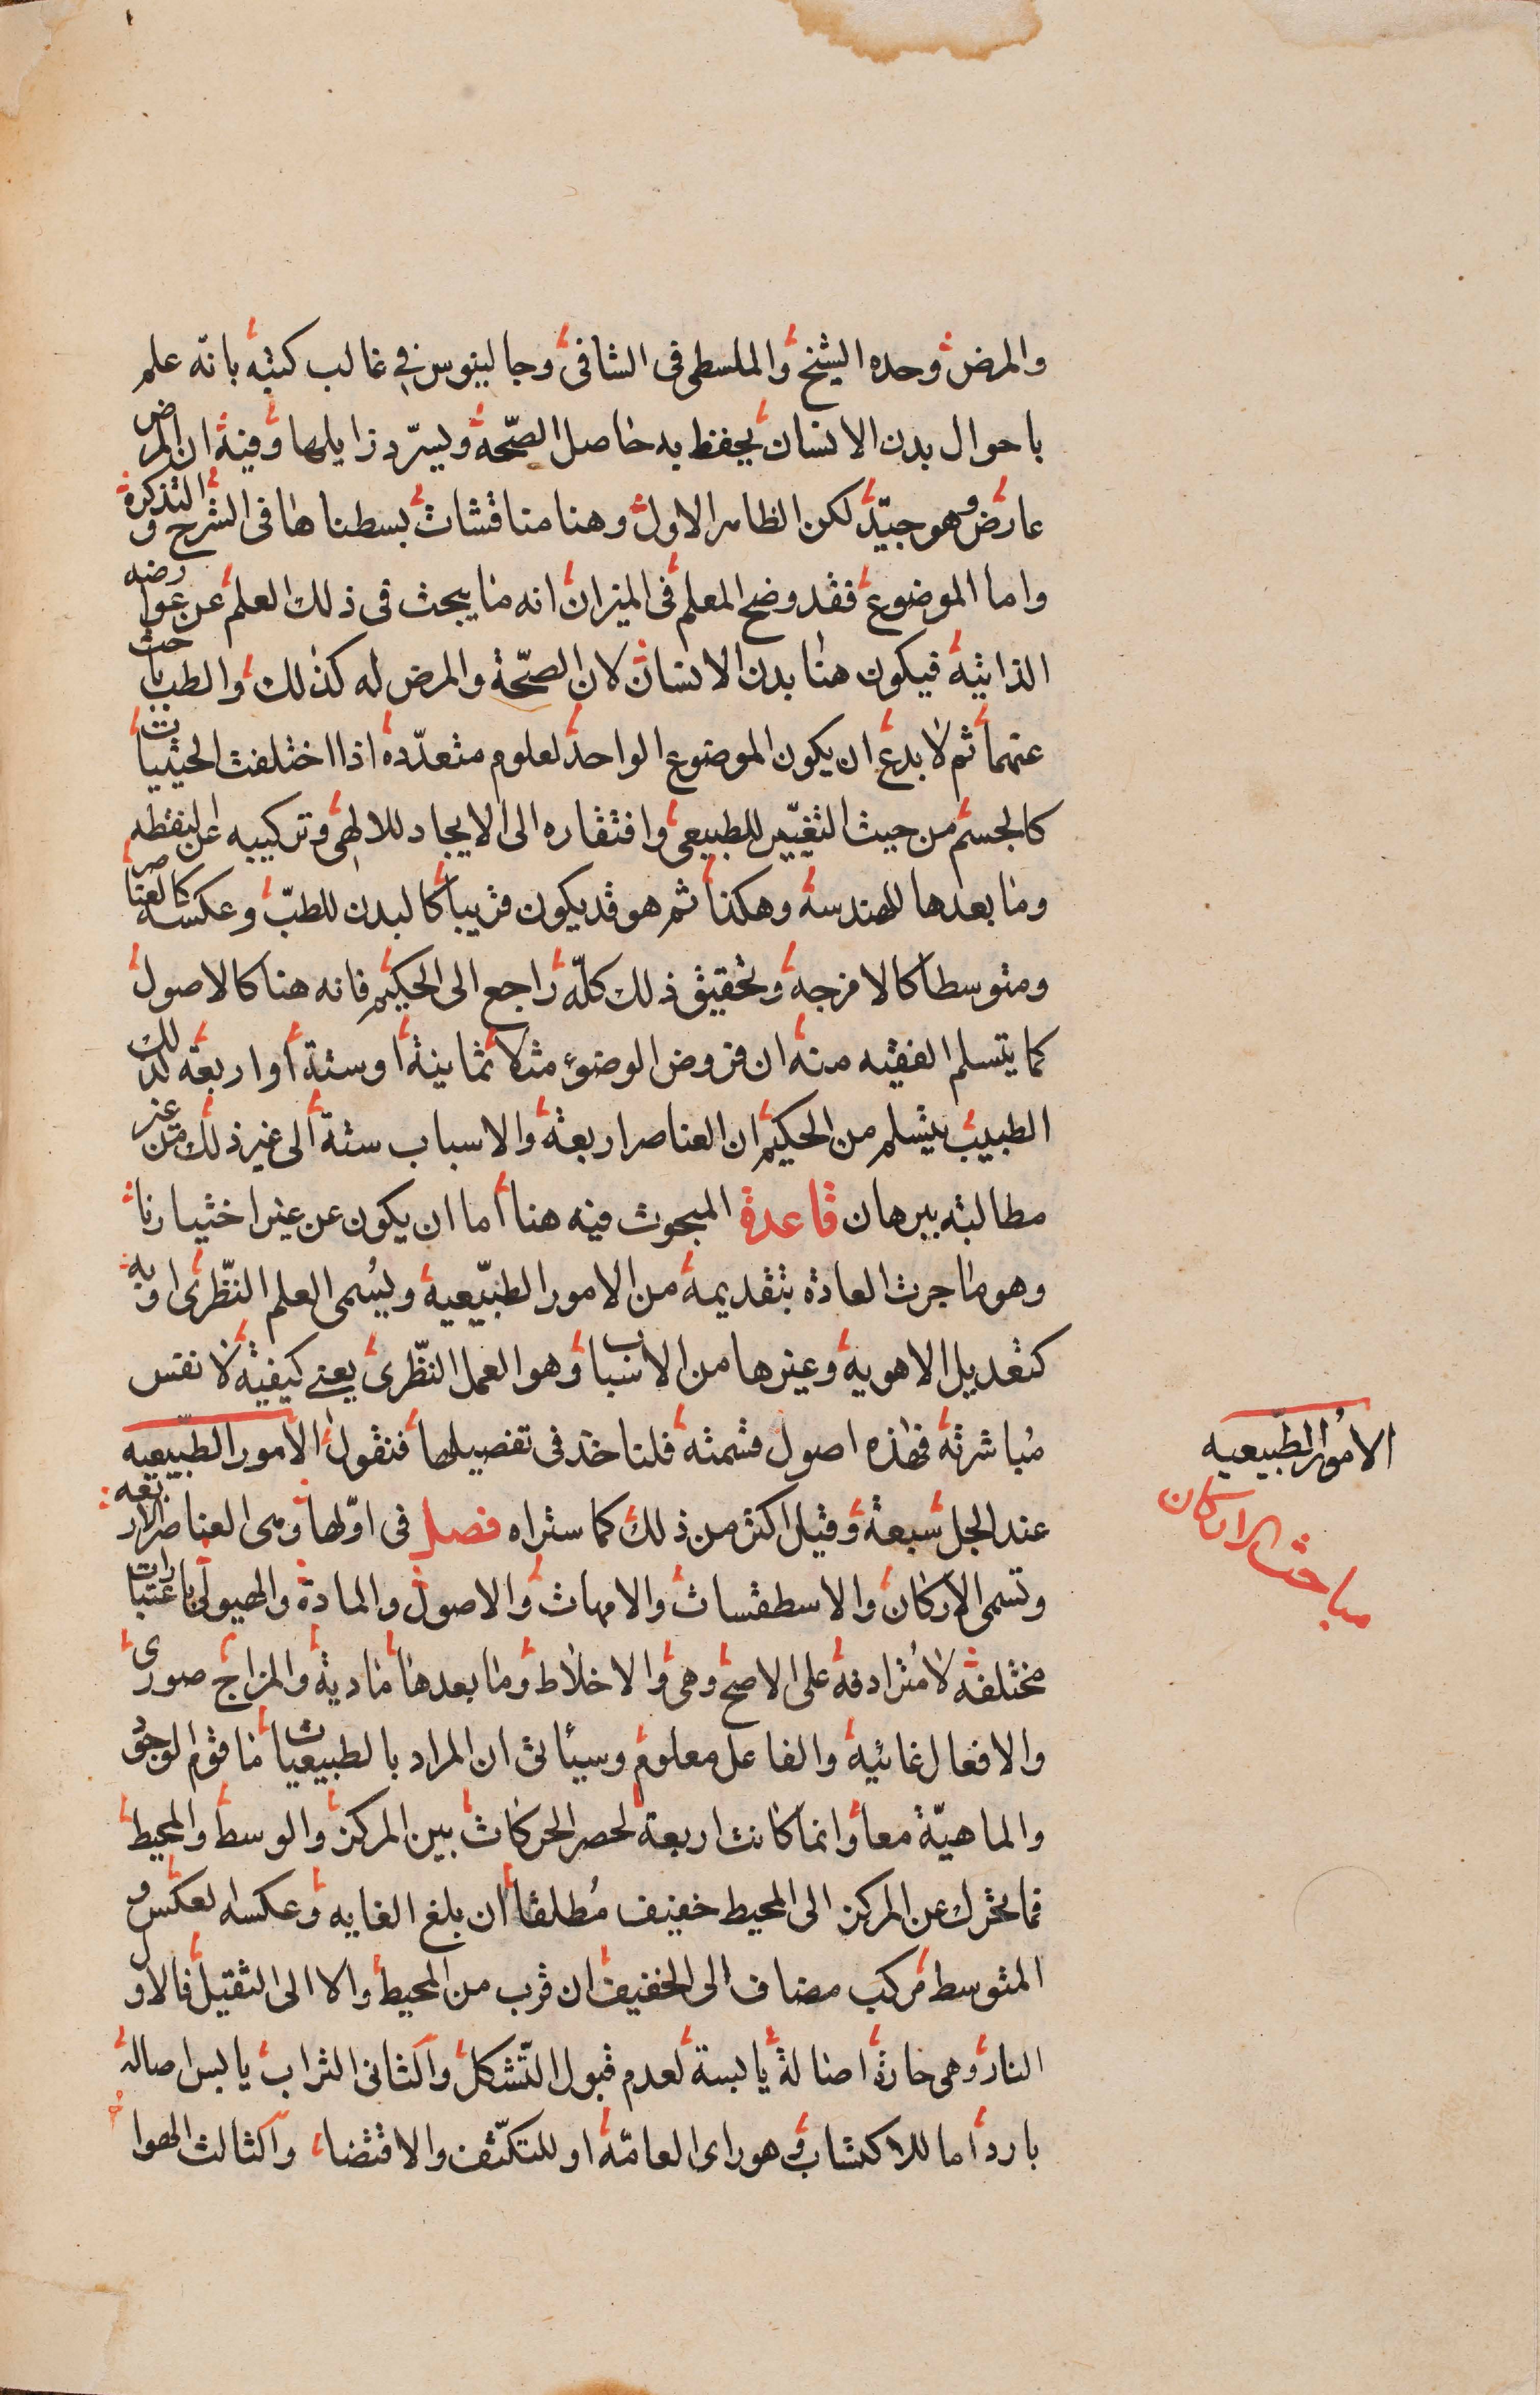 والمرض وحده الشيخ والملسطى فى الشافى وجالينوس فى غالب كتبه بانه علم
باحوال بدن الانسان يحفظ به حاصل الصّحة ويسترد زايلها وفيه ان المرض
عارض وهو جيّد لكن الظاهر الاول وهنا مناقشات بسطناها فى الشرح والتذكرة
واما الموضوع فقد وضح المعلم فى الميزان انه ما يبحث فى ذلك العلم عن عوارضه
الذاتية فيكون هنا بدن الانسان لان الصّحة والمرض له كذلك والطب باحث
عنهما ثم لا بدع ان يكون الموضوع الواحد لعلوم متعدّدة اذا اختلفت الحيثيات
كالجسم من حيث التغيّير للطبيعى وافتقاره الى الايجاد للالهى وتركيبه عن لنقطه
وما بعدها للهندسة وهكذا ثم هو قد يكون قريبا كالبدن للطبّ وعكسه كالعناصر
ومتوسطا كالامزجة وتحقيق ذلك كلّه راجع الى الحكيم فانه هنا كالاصول
كما يتسلم الفقيه منه ان فروض الوضوء مثلا ثمانية او ستة او اربعة كذلك
الطبيب يتسلم من الحكيم ان العناصر اربعة والاسباب ستة الى غير ذلك من غير
مطالبته ببرهان قاعدة المبحوث فيه هنا اما ان يكون عن غير اختيارنا
وهو ما جرت العادة بتقديمه من الامور الطبّيعية ويُسمى العلم النّظرى او به
كتعديل الاهوية وغيرها من الاسباب وهو العمل النّظرى يعنى كيفية لا نفس
مُباشرته فهذه اصول قسمته فلناخذ فى تفصيلها فنقول الامور الطبّيعيه
عند الجل سبعة وقيل اكثر من ذلك كما ستراه فصل فى اوّلها وهى العناصر الاربعه
وتسمى الاركان والاسطقسات والامهات والاصول والمادة والهيولى باعتبارات
مختلفة لا مُترادفة على الاصح وهى والاخلاط وما بعدها مادية والمزاج صورى
والافعال غائية والفاعل معلوم وسيأتى ان المراد بالطبيعيات ما قوم الوجود
والماهيّة معا وانما كانت اربعة لحصر الحركات بين المركز والوسط والمحيط
فما تحرك عن المركز الى المحيط خفيف مُطلقا ان بلغ الغايه وعكسه لعكس و
المتوسط مركب مضاف الى الخفيف ان قرب من المحيط والا الى الثقيل فالاول
النار وهى حارة اصالة يابسة لعدم قبول التّشكل والثانى التراب يابس اصاله
بارد اما للاكتساب وهو راى العامّة او للتكثّف والاقتضاء والثالث الهوا
الامُور الطّبيعيه
مباحث الاركان